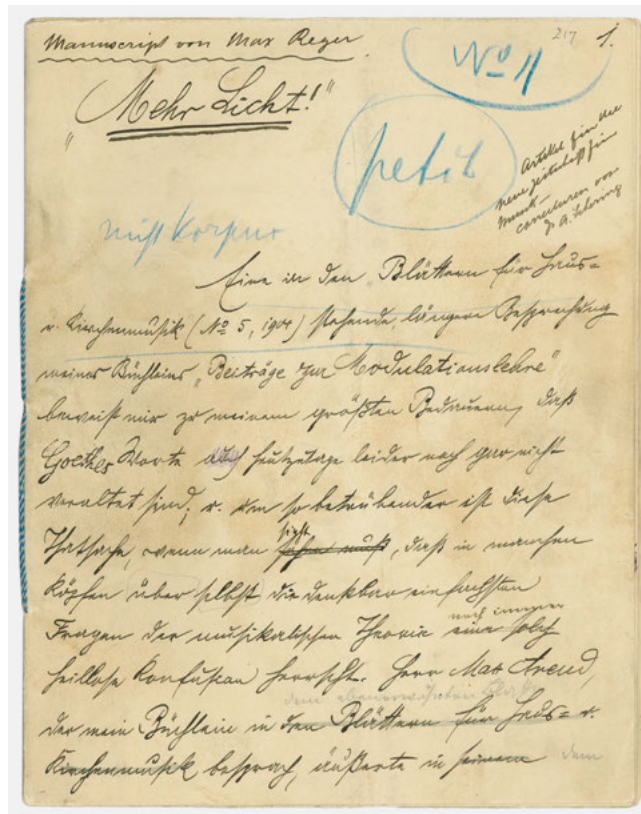 Manuscript von Max Reger.
No 11
217
1.
"Mehr Licht!"
petit
Artikel für die
neue Zeitschrift für
Musik
nicht Korpus
Eine in den "Blättern für Haus=
u. Kirchenmusik (No 5, 1904) stehende, längere Besprechung
meines Büchleins "Beiträge zur Modulationslehre"
beweist mir zu meinem größten Bedauern, daß
Goethes Worte auch heutzutage leider noch gar nicht
veraltet sind; u. um so betrübender ist diese
Thatsache, wenn man sieht, daß in manchen
Köpfen über selbst die denkbar einfachsten
noch immer
Fragen der musikalischen Theorie eine solch
heillose Konfusion herrscht. Herr Max Arend,
dem obenerwähnten Blatt
der mein Büchlein in den Blättern für Haus= u.
Kirchenmusik besprach, äußerte in seinem dem